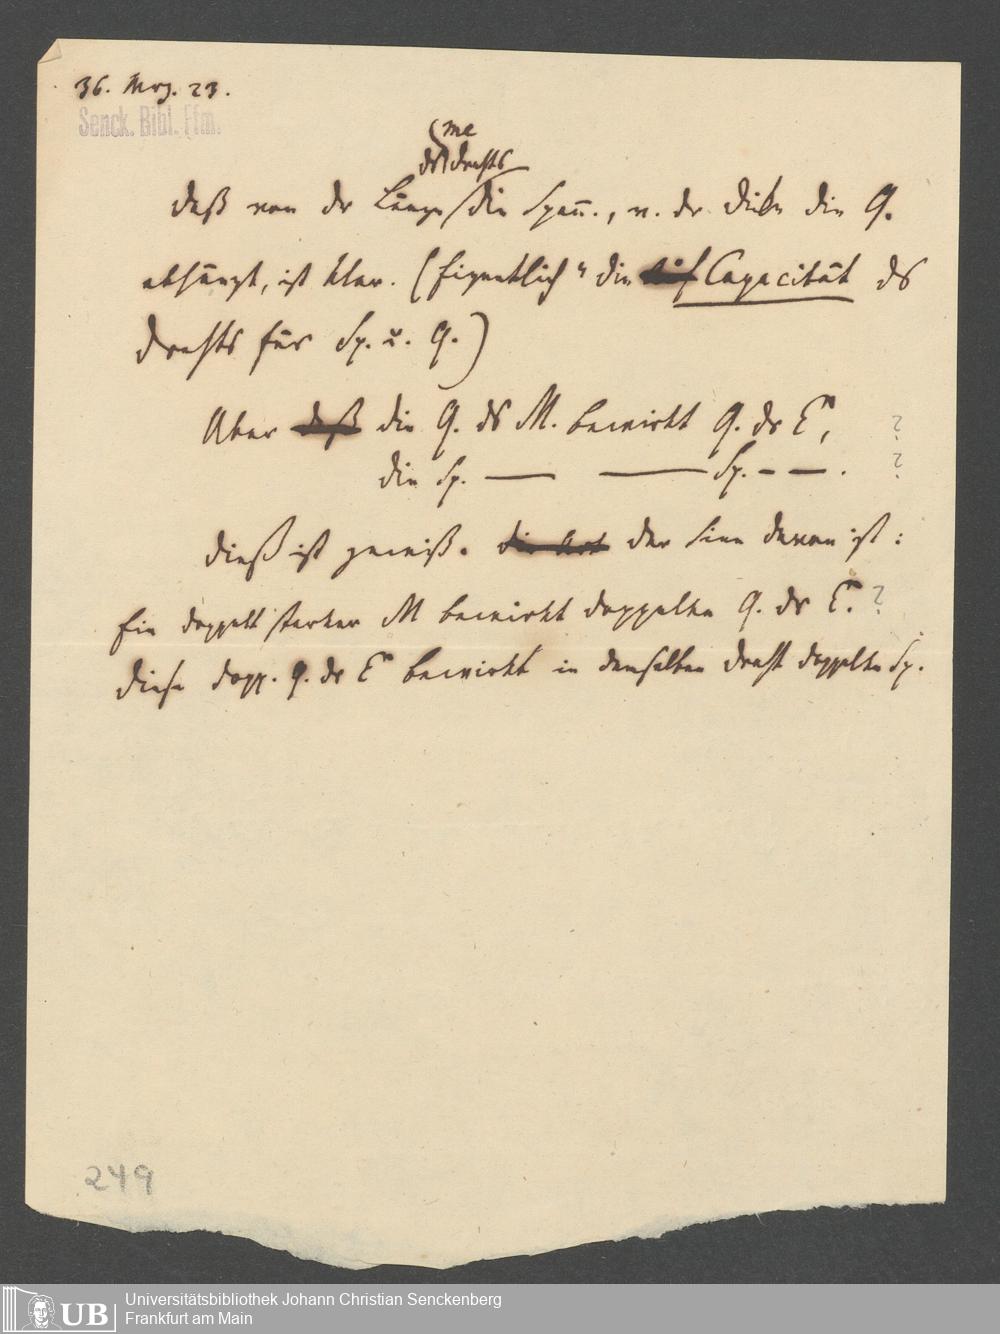 36. Mrz. 23.
Senck. Bibl. Ffm.
me
ds drahts
daß von dr Länge die Spann., v. dr Dicke die Q.
abhängt, ist klar. (Eigentlich die Capacität ds
drahts für Sp. u. Q.)
Aber daß die Q. ds M. bewirkt Q. ds E, ?
die Sp. — — Sp. – –. ?
dieß ist gewiß. die Art der Sinn davon ist:
Ein doppelt starker M bewirkt doppelte Q. ds E. ?
diese dopp. Q. ds E bewirkt in demselben draht doppelte Sp.
249
UB
Universitätsbibliothek Johann Christian Senckenberg
Frankfurt am Main